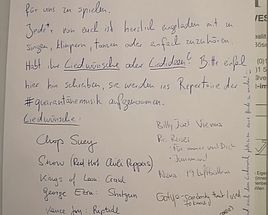 für uns zu spielen.
Jede*r von euch ist herzlich eingeladen mit zu
singen, klimpern, tanzen oder einfach zuzuhören.
Habt ihr Liedwünsche oder Liedideen? Bitte einfach
hier hin schreiben, sie werden ins Repertoire der
#quarantänemusik aufgenommen.
Liedwünsche:
Chop Suey
Snow (Red Hot Chili Peppers)
Kings of Leon: Crawl
George Ezra: Shotgun
Vance Joy: Riptide
Billy Joel Vienna
Für immer und Dich
Nena 99 Luftballons
Gotye - Somebody that I used
to know